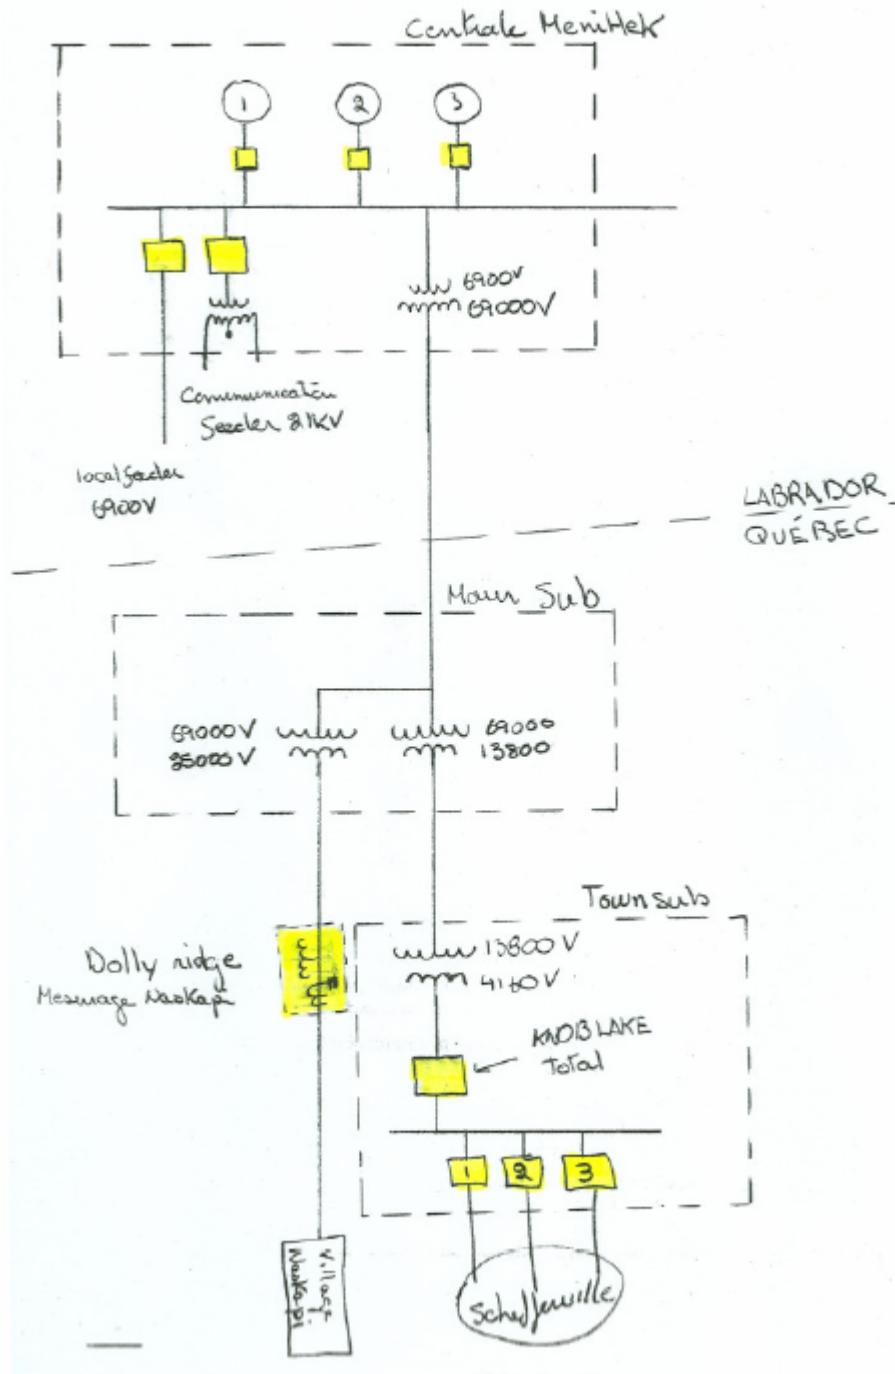 Centrale Menihek
1
2
3
6900V
69000V
Communication
feeder 21KV
local feeder
6900V
LABRADOR
QUÉBEC
Main Sub
69000V
25000V
69000
13800
Town sub
13800 V
4160V
Dolly ridge
Mesurage Naskapi
KNOB LAKE
Total
1
2
3
Village
Naskapi
Schefferville